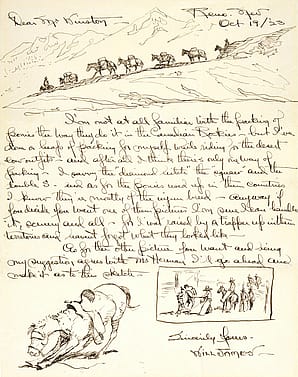 Dear Mr Winston
Reno. Nev
Oct 19/23
I'm not at all familiar with the packing of
ponies the way they do it in the Canadian Rockies, but I've
done a heap of packing for myself while riding for the desert
cow outfits - and after all I think there's only way of
packing - I savvy the diamond hitch the square and the
double S - and as for the ponies used up in that country
I know they're mostly of the injun breed - anyway if
you decide you want one of them pictures I'm sure I can handle
it, scenery and all - for I was raised by a trapper up within
territory and haven't forgot what they looked like -
As for the other picture you want and using
my suggestion agrees with Mr I'll go ahead and
make it as to the sketch -
Sincerely Yours -
WILL JAMES -